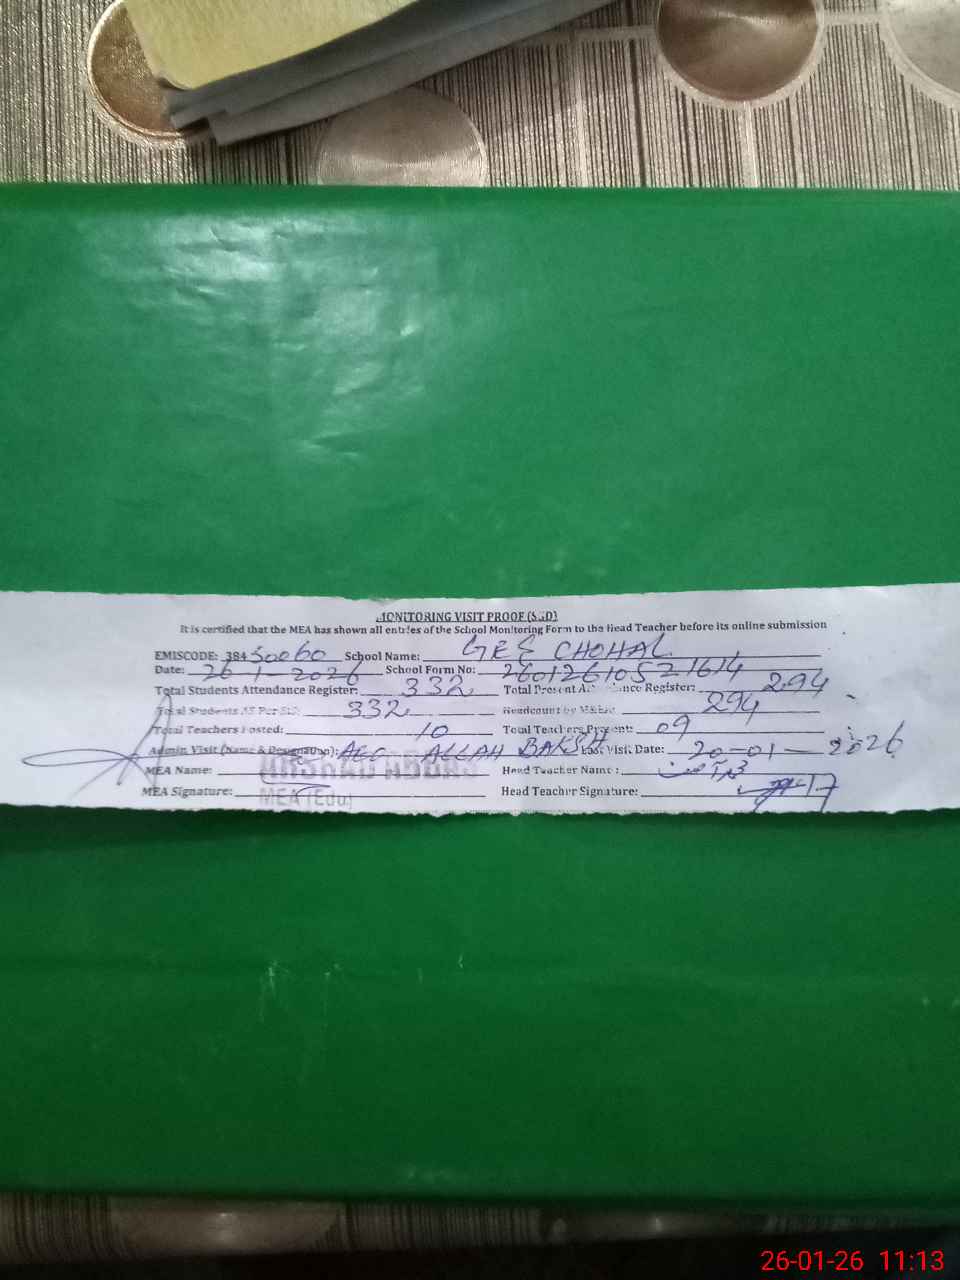 MONITORING VISIT PROOF (SED)
It is certified that the MEA has shown all entries of the School Monitoring Form to the Head Teacher before its online submission
EMISCODE: 38450060 School Name: GES CHOHAL
Date: 26-1-2026 School Form No: 260126105 21614
Total Students Attendance Register: 332 Total Present Attendance Register: 294
Total Students AS Per SIS: 332 Headcount by MEA: 294
Total Teachers Posted: 10 Total Teachers Present: 09
Admin Visit (Name & Designation): AEO ALLAH BAKSH Last Visit Date: 20-01-2026
MEA Name: ARSHAD ABBAS Head Teacher Name :
MEA Signature: MEA (Edu) Head Teacher Signature:
26-01-26 11:13